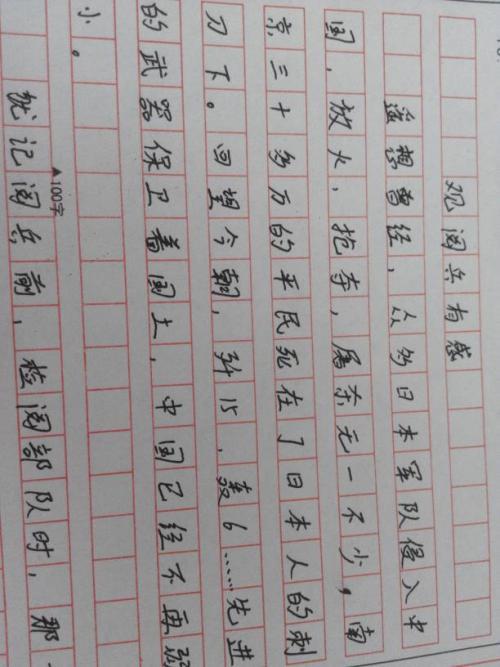 观阅兵有感
遥想曾经，众多日本军队侵入中
国，放火，抢夺，屠杀无一不少，南
京三十多万的平民死在了日本人的刺
刀下。回望今朝，歼15，轰6……先进
的武器保卫着国土，中国已经不再弱
小。
▲100字
犹记阅兵前，检阅部队时，那